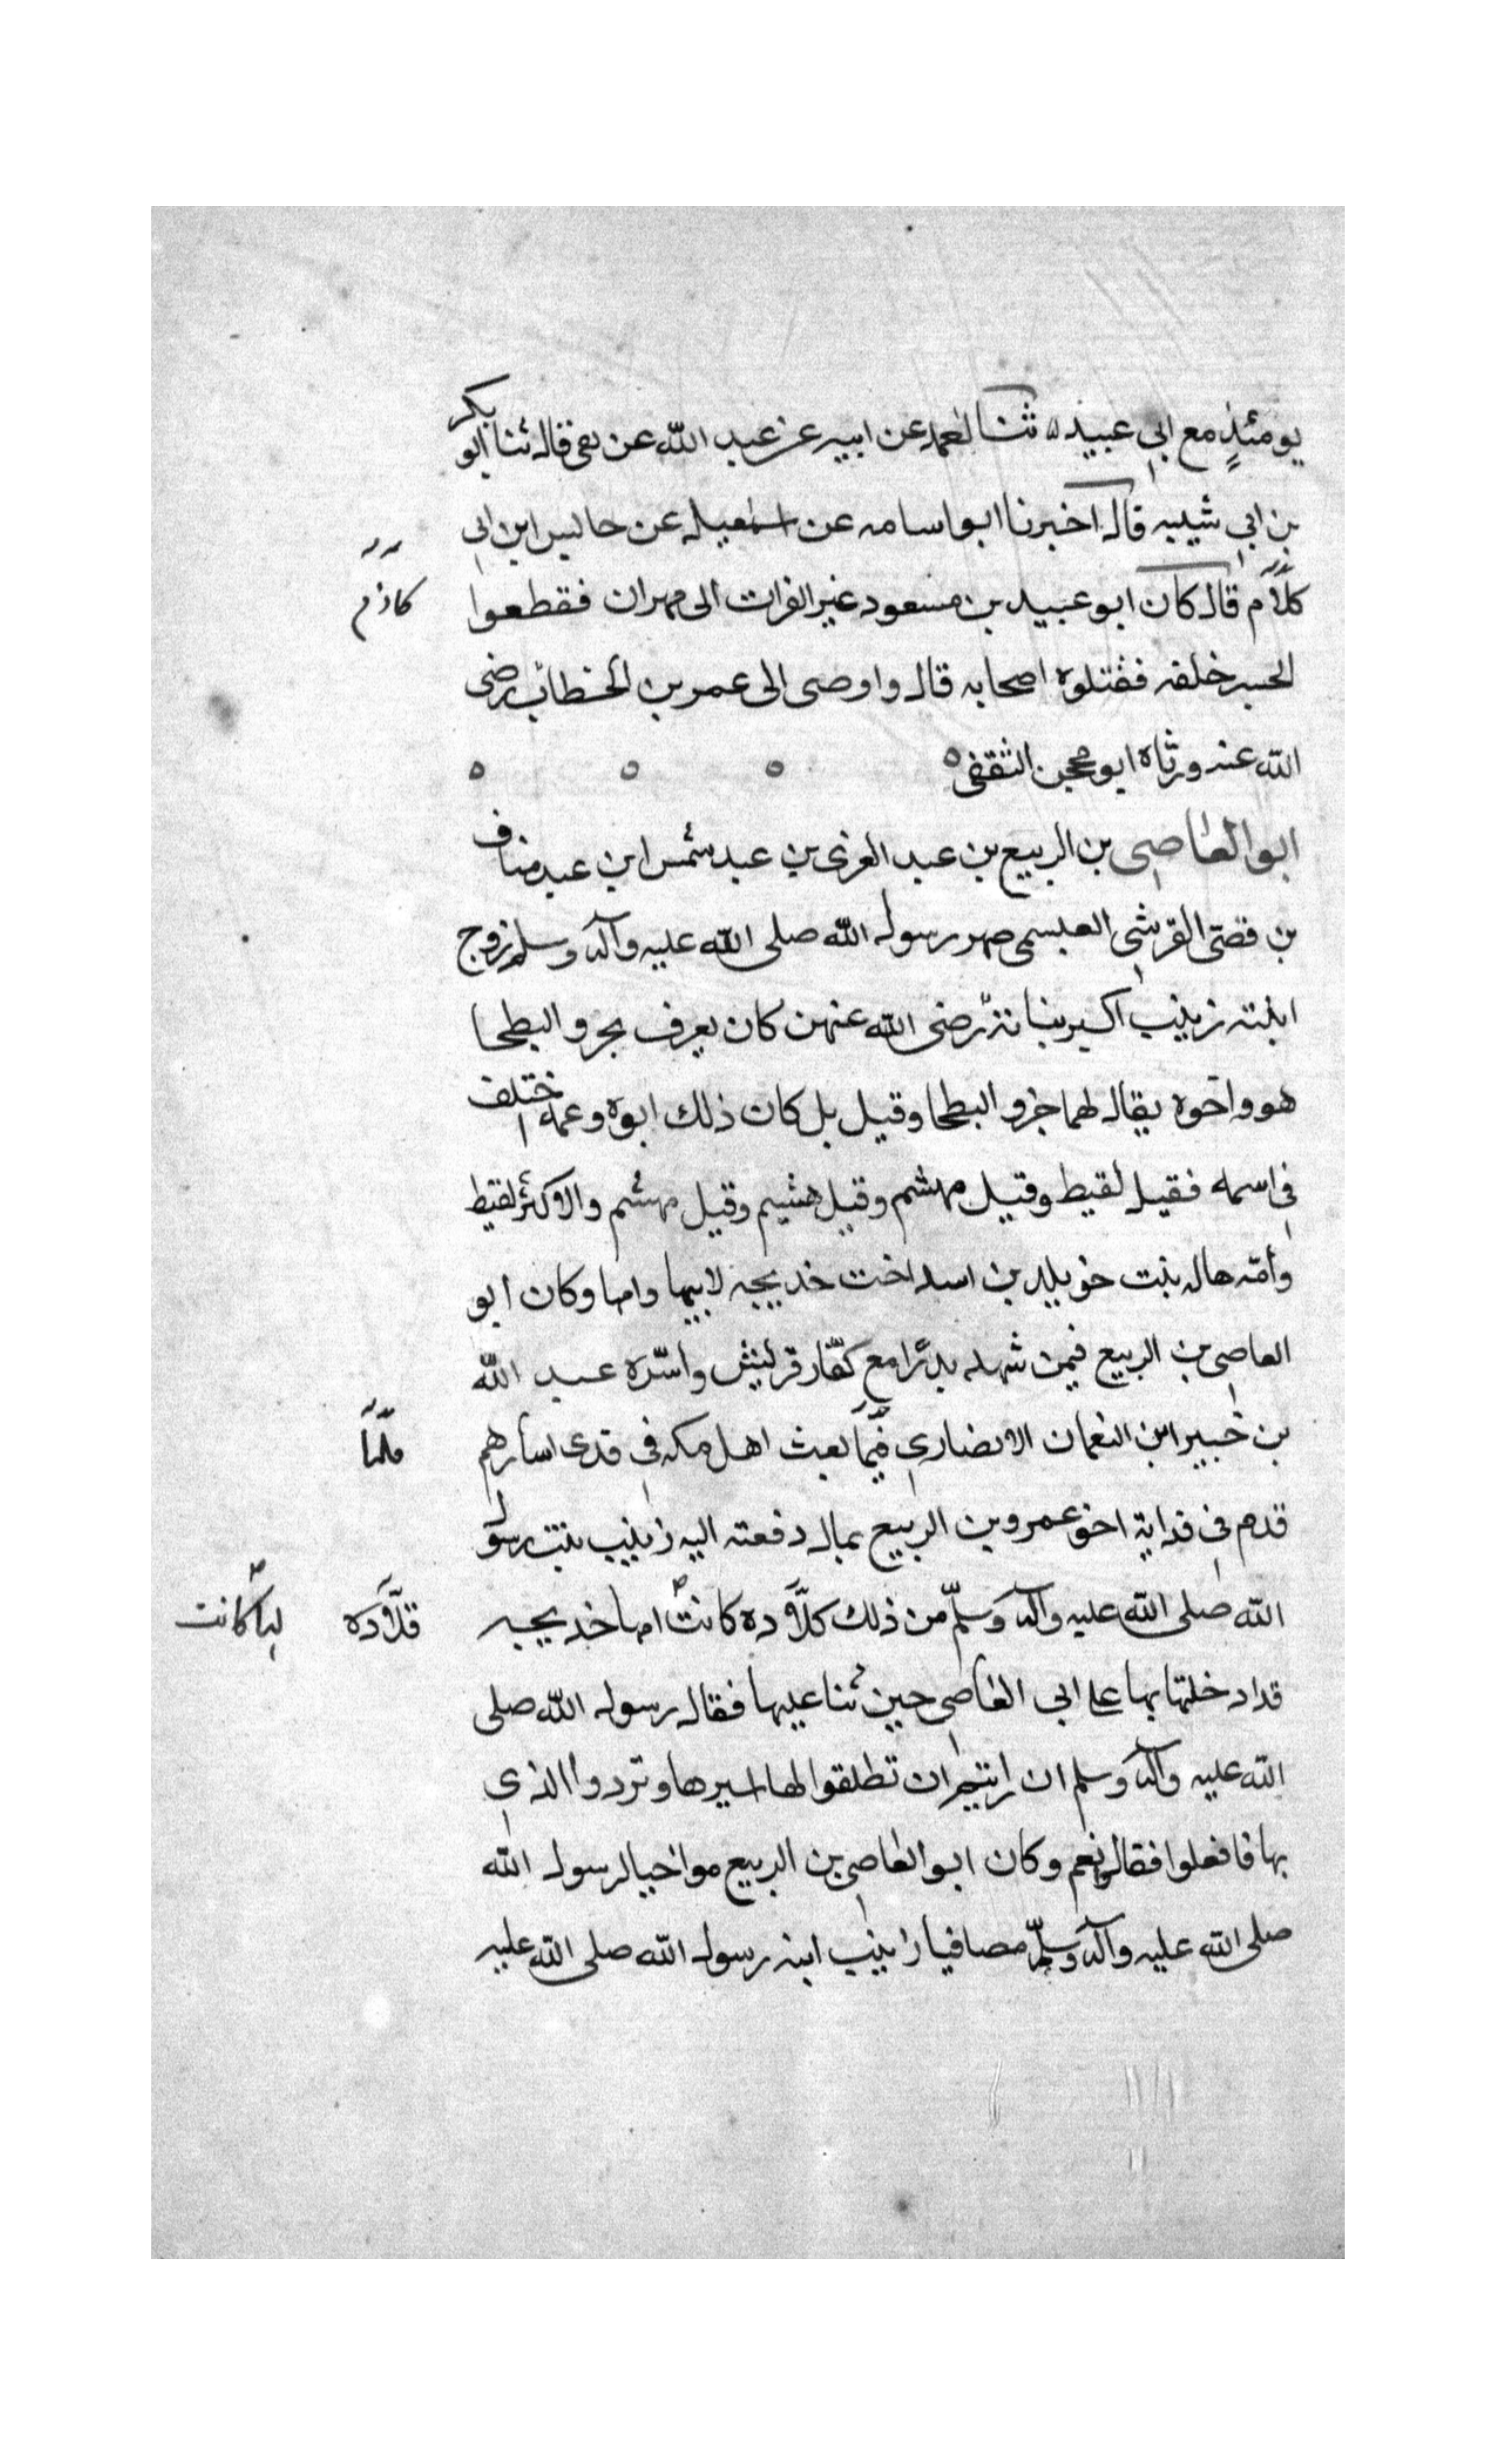 يومئذٍ مع ابي عبيد ثنا لعمد عن ابيه عن عبد الله عن بقى قال ثنا ابو بكر
بن ابي شيبه قال اخبرنا ابو اسامه عن اسمعيل عن حاليس ابن ابى
كلاَم قال كان ابو عبيد بن مسعود عبر الفرات الى مهران فقطعوا
كاذم
الجسر خلفه فقتلوه اصحابه قال واوصى الى عمر بن الخطاب رضى
الله عنه ورثاه ابو محجن الثقفى
ابو العاصى بن الربيع بن عبد العزى بن عبد شمس ابن عبد مناف
بن قصى القرشى العبسمى صهر رسول الله صلى الله عليه وآله وسلم زوج
ابنته زينب اكبر بناته رضى الله عنهن كان يعرف بجرو البطحا
هو واخوه يقال لهما جرو البطحا وقيل بل كان ذلك ابوه وعمه اختلف
فى اسمه فقيل لقيط وقيل مهشم وقيل هشيم وقيل مهشم والاكثر لقيط
وأمّه هاله بنت خويلد بن اسد اخت خديجه لابيها وامها وكان ابو
العاصى بن الربيع فيمن شهد بدرًا مع كفّار قريش واسّره عبد الله
بن جبير ابن النعمان الانصارى فيَّما بعث اهل مكه فى فدى اسارهم
فلمّا
قدم فى فدايه اخو عمرو بن الربيع بمال دفعته اليه زينب بنت رسول
الله صلى الله عليه وآله وسلّم من ذلك كلاَّده كانت امها خديجه
قلاَّده
لها كانت
قد ادخلتها بها على ابى العاصى حين ثنا عليها فقال رسول الله صلى
الله عليه وآله وسلم ان رايتم ان تطلقوا لها اسيرها وتردوا الذى
بها فافعلوا فقالو نعم وكان ابو العاصى بن الربيع مواخيا لرسول الله
صلى الله عليه وآله وسلّم مصافيا زينب ابنه رسول الله صلى الله عليه